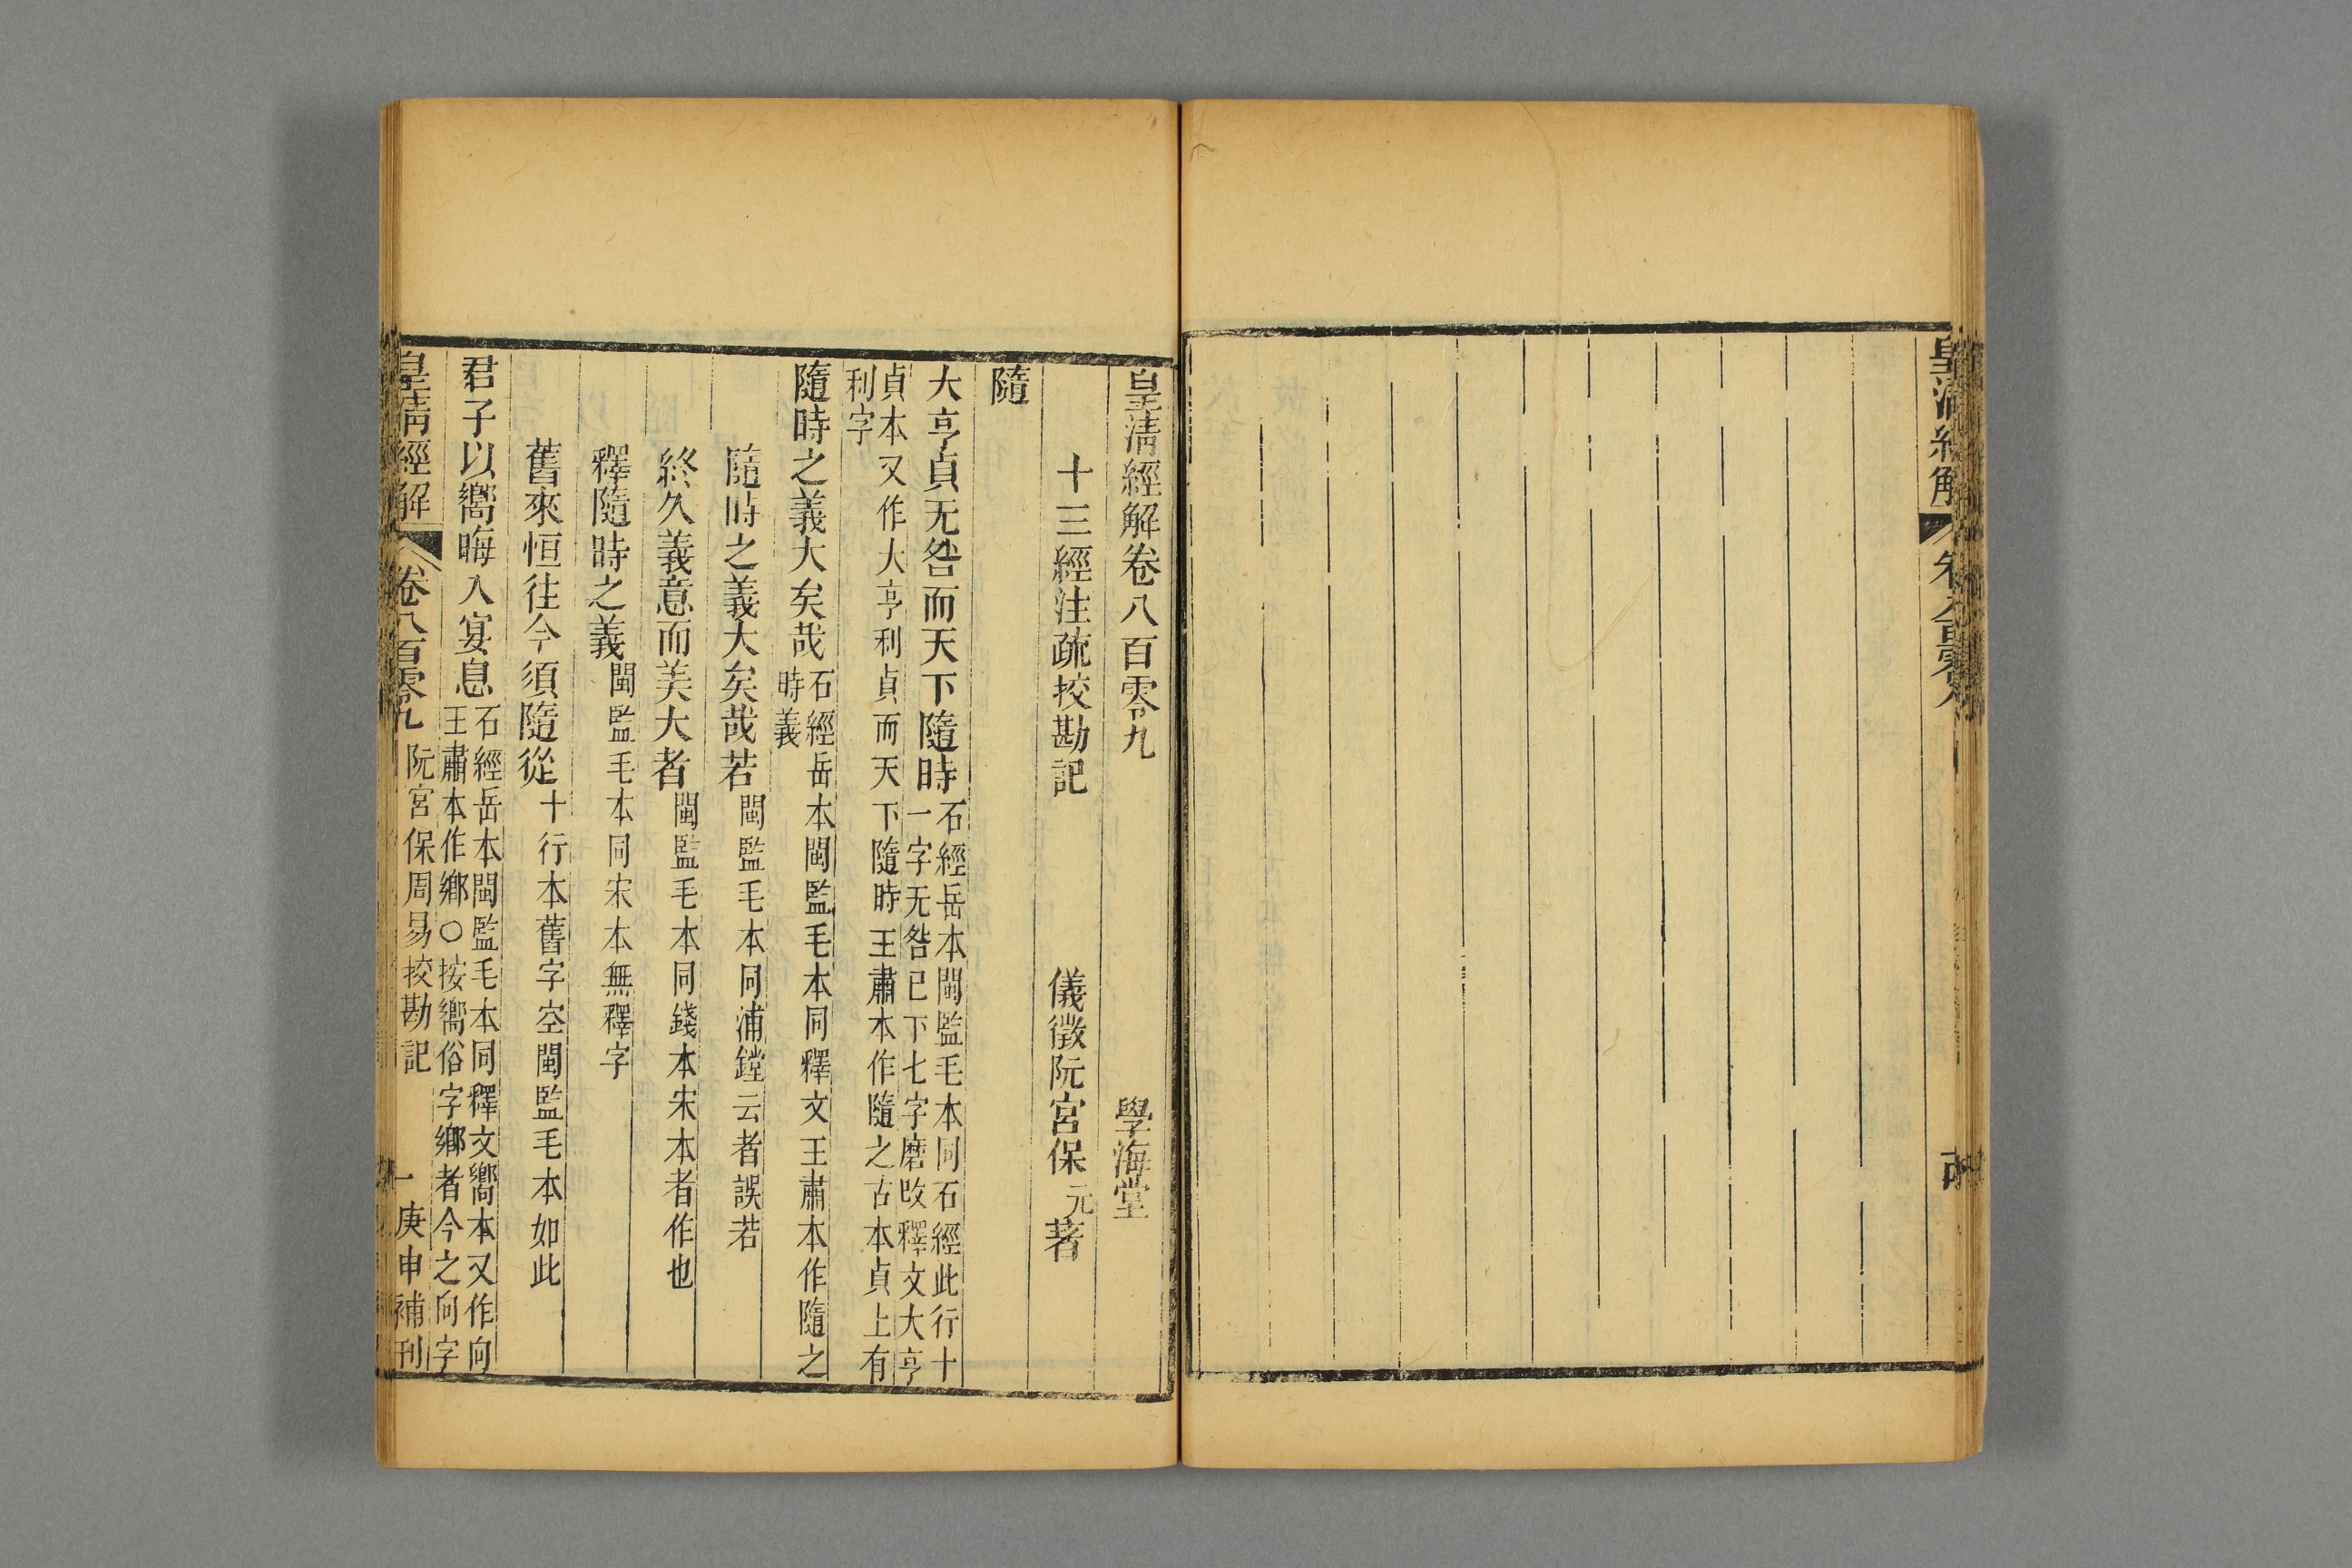 皇清經解
皇清經解卷八百零九
學海堂
十三經注疏挍勘記
儀徵阮宮保元著
隨
大亨貞无咎而天下隨時石經岳本閩監毛本同石經此行十
一字无咎已下七字磨改釋文大亨
貞本又作大亨利貞而天下隨時王肅本作隨之古本貞上有
利字
隨時之義大矣哉石經岳本閩監毛本同釋文王肅本作隨之
時義
隨時之義大矣哉若閩監毛本同浦鏜云者誤若
終久義意而美大者閩監毛本同錢本宋本者作也
釋隨時之義閩監毛本同宋本無釋字
舊來恒往今須隨從十行本舊字空閩監毛本如此
君子以嚮晦入宴息石經岳本閩監毛本同釋文嚮本又作向
王肅本作鄉○按嚮俗字鄉者今之向字
皇清經解
卷八百零九
阮宮保周易挍勘記
一
庚申補刊